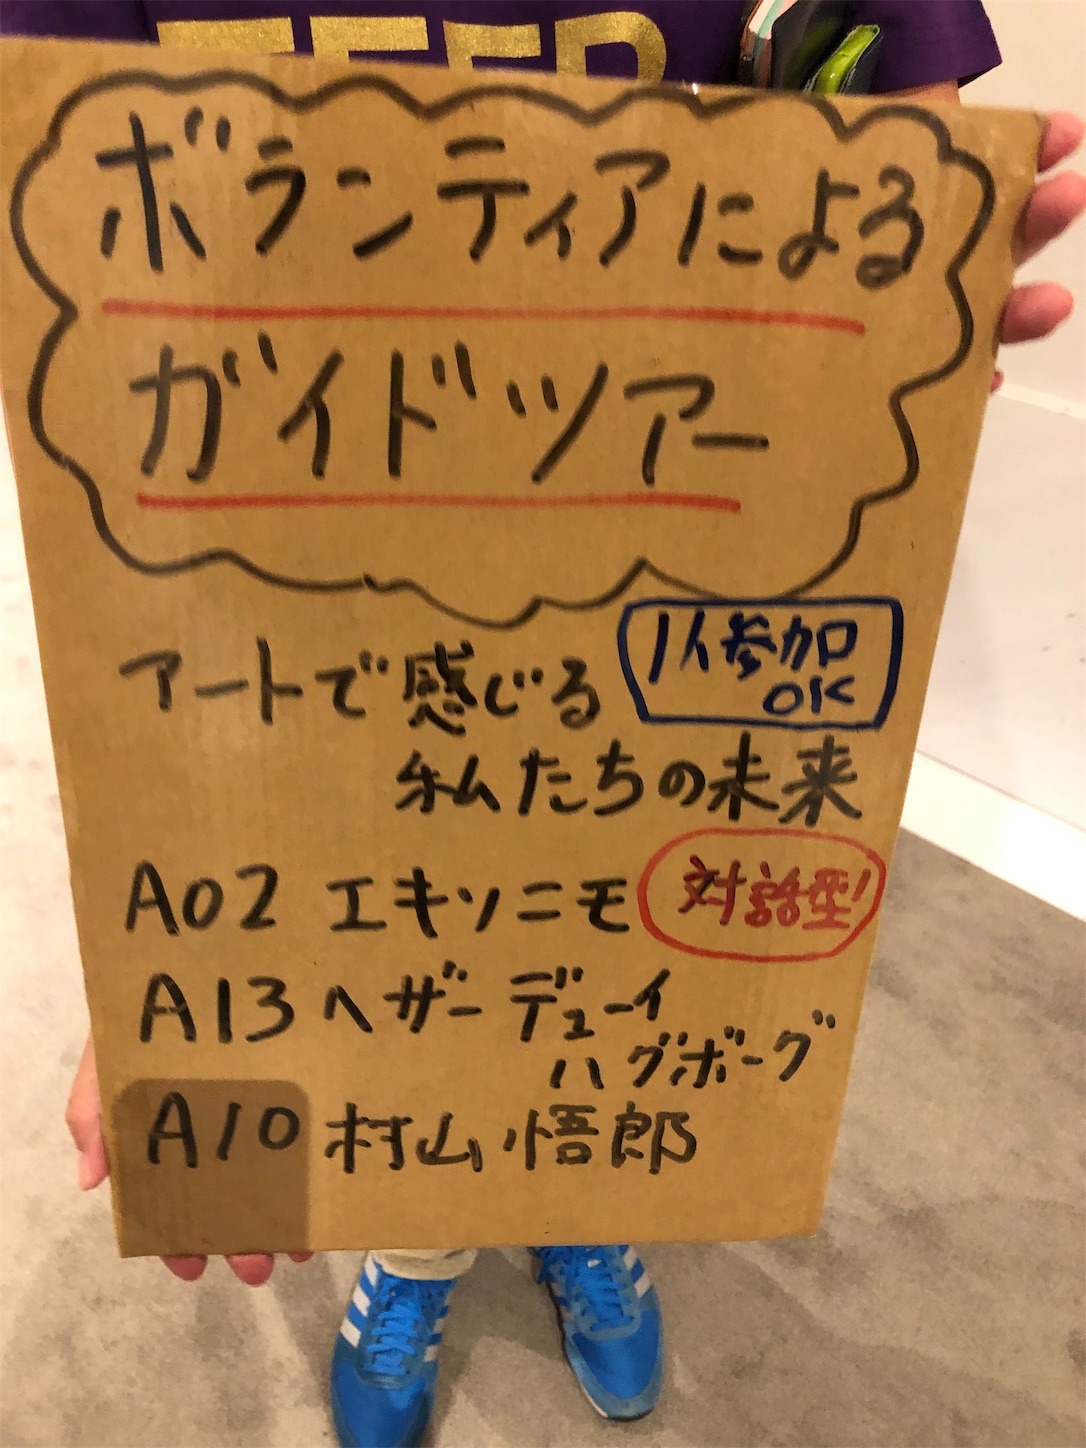 TEER
ボランティアによる
ガイドツアー
アートで感じる
1人参加
OK
私たちの未来
A02 エキソニモ
対話型!
A13 ヘザー デューイ
ハグボーグ
A10 村山 悟郎